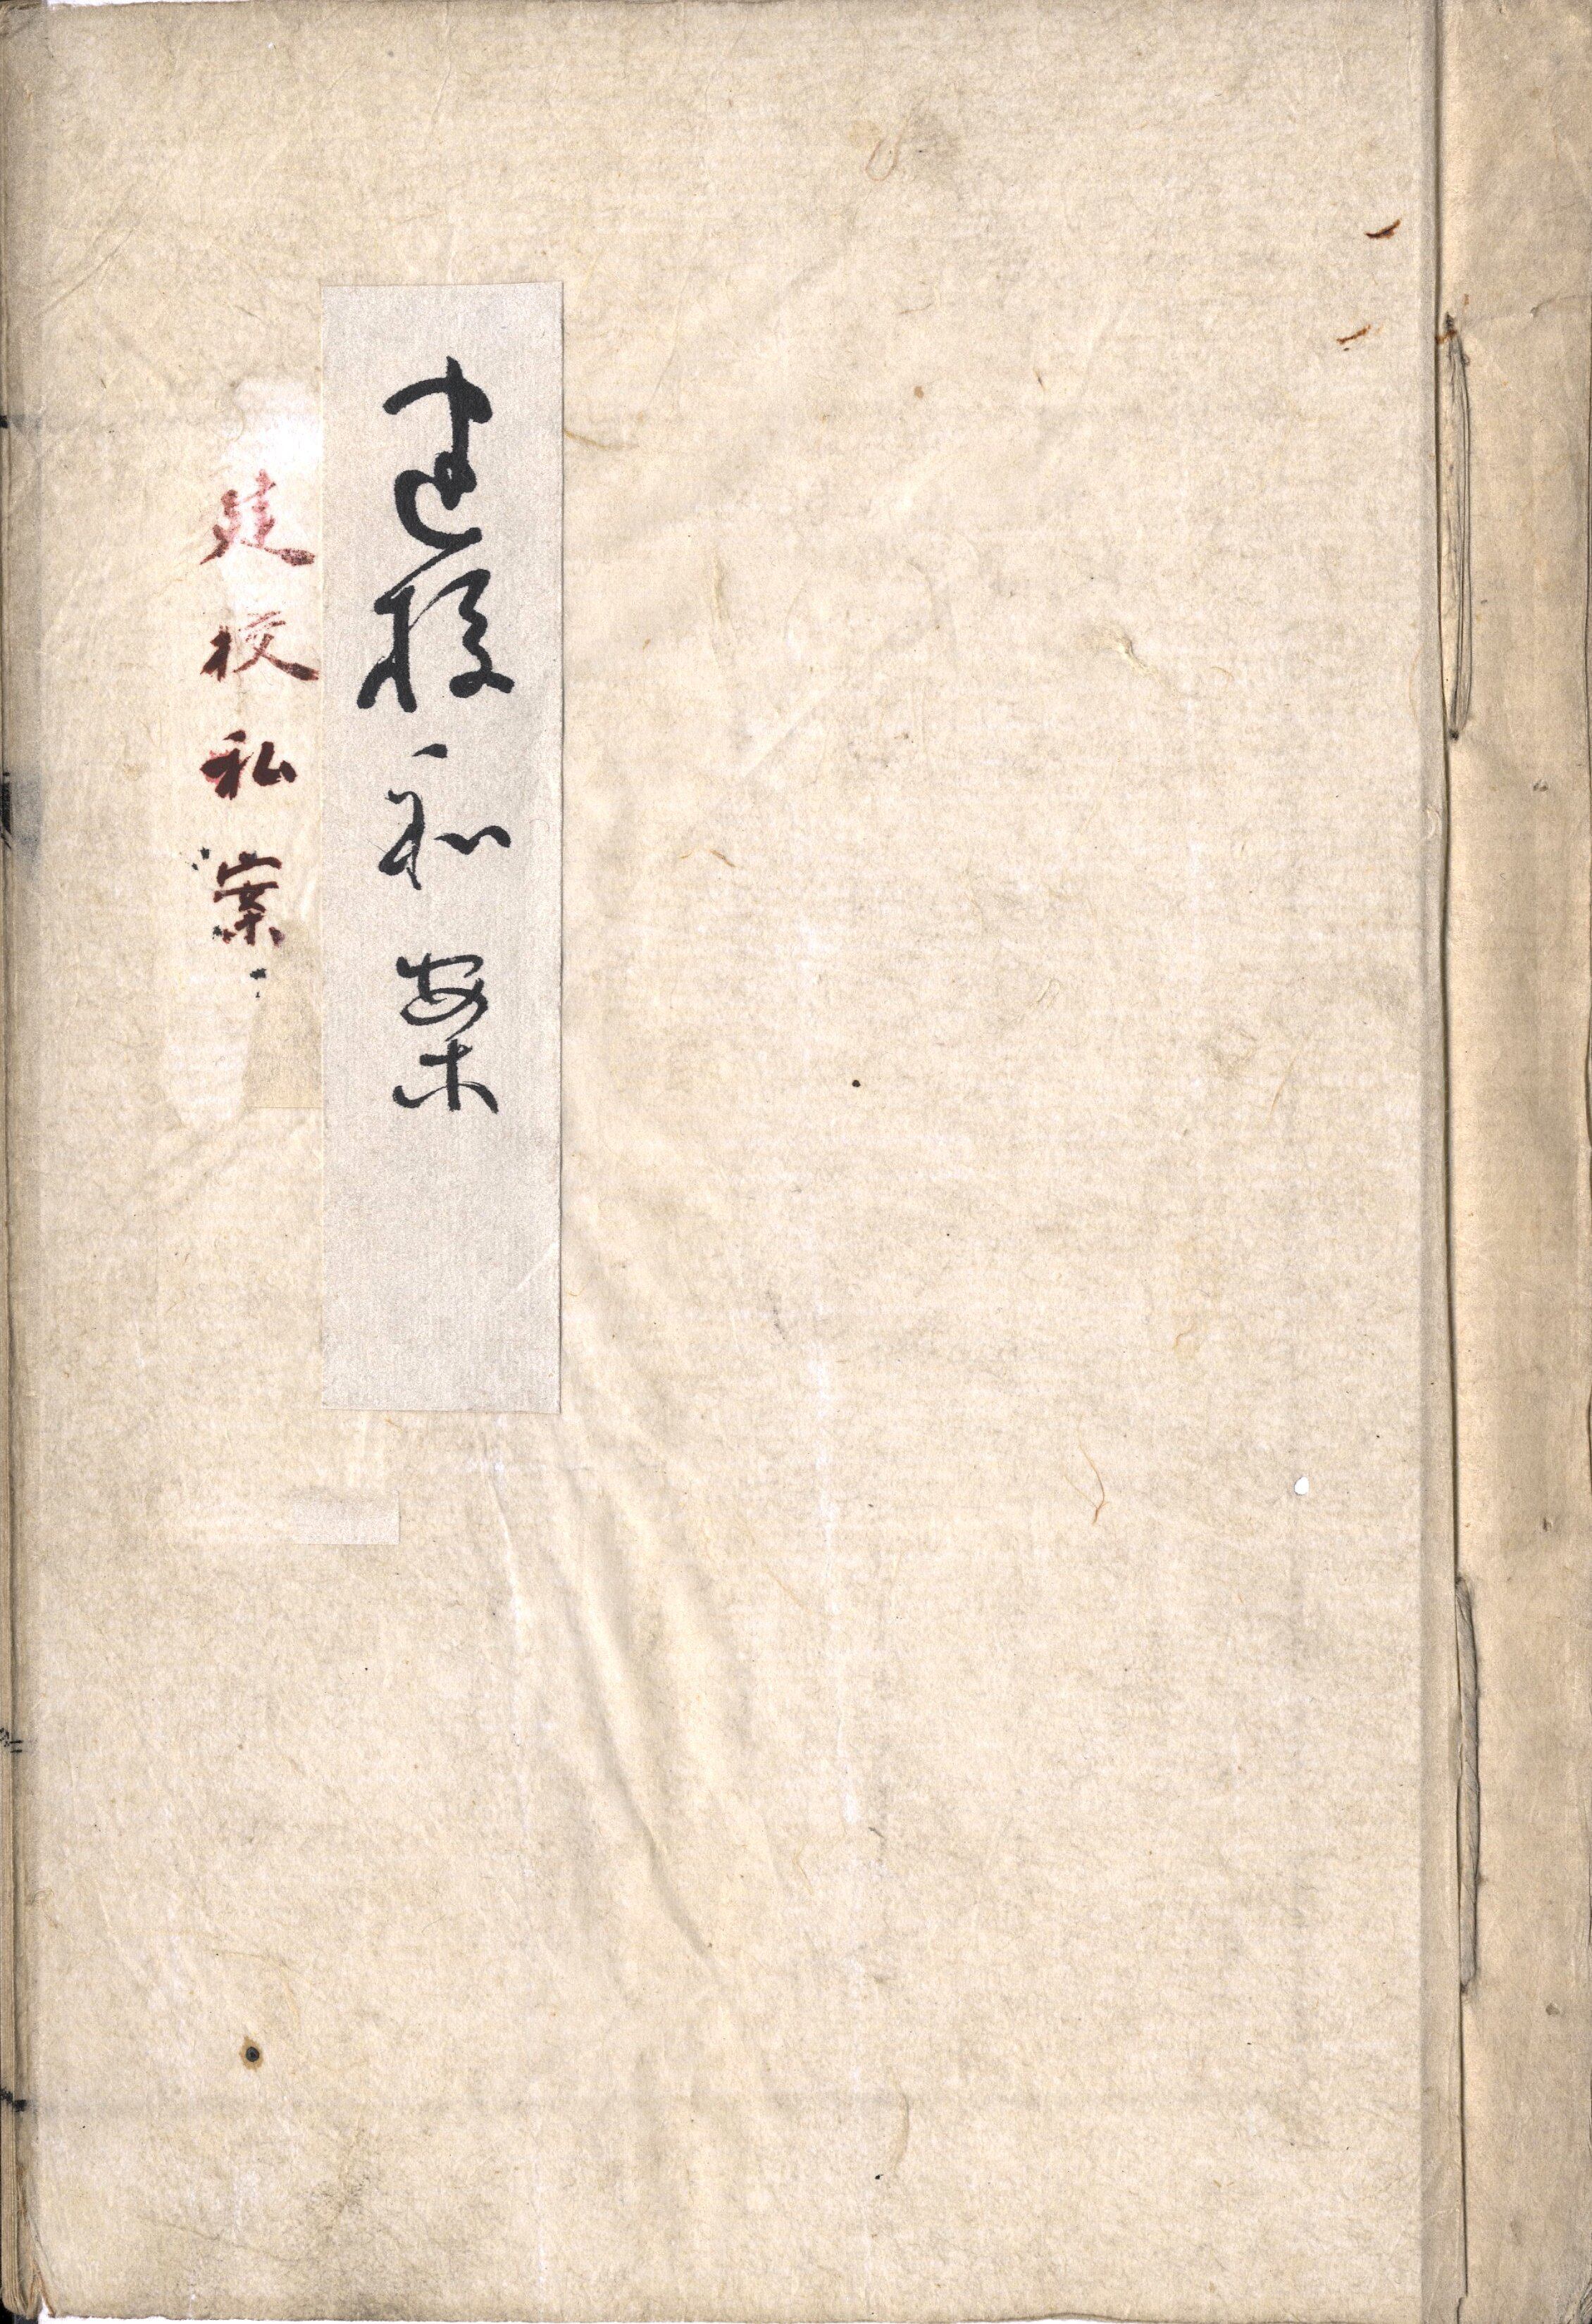 建校私案
建校私案